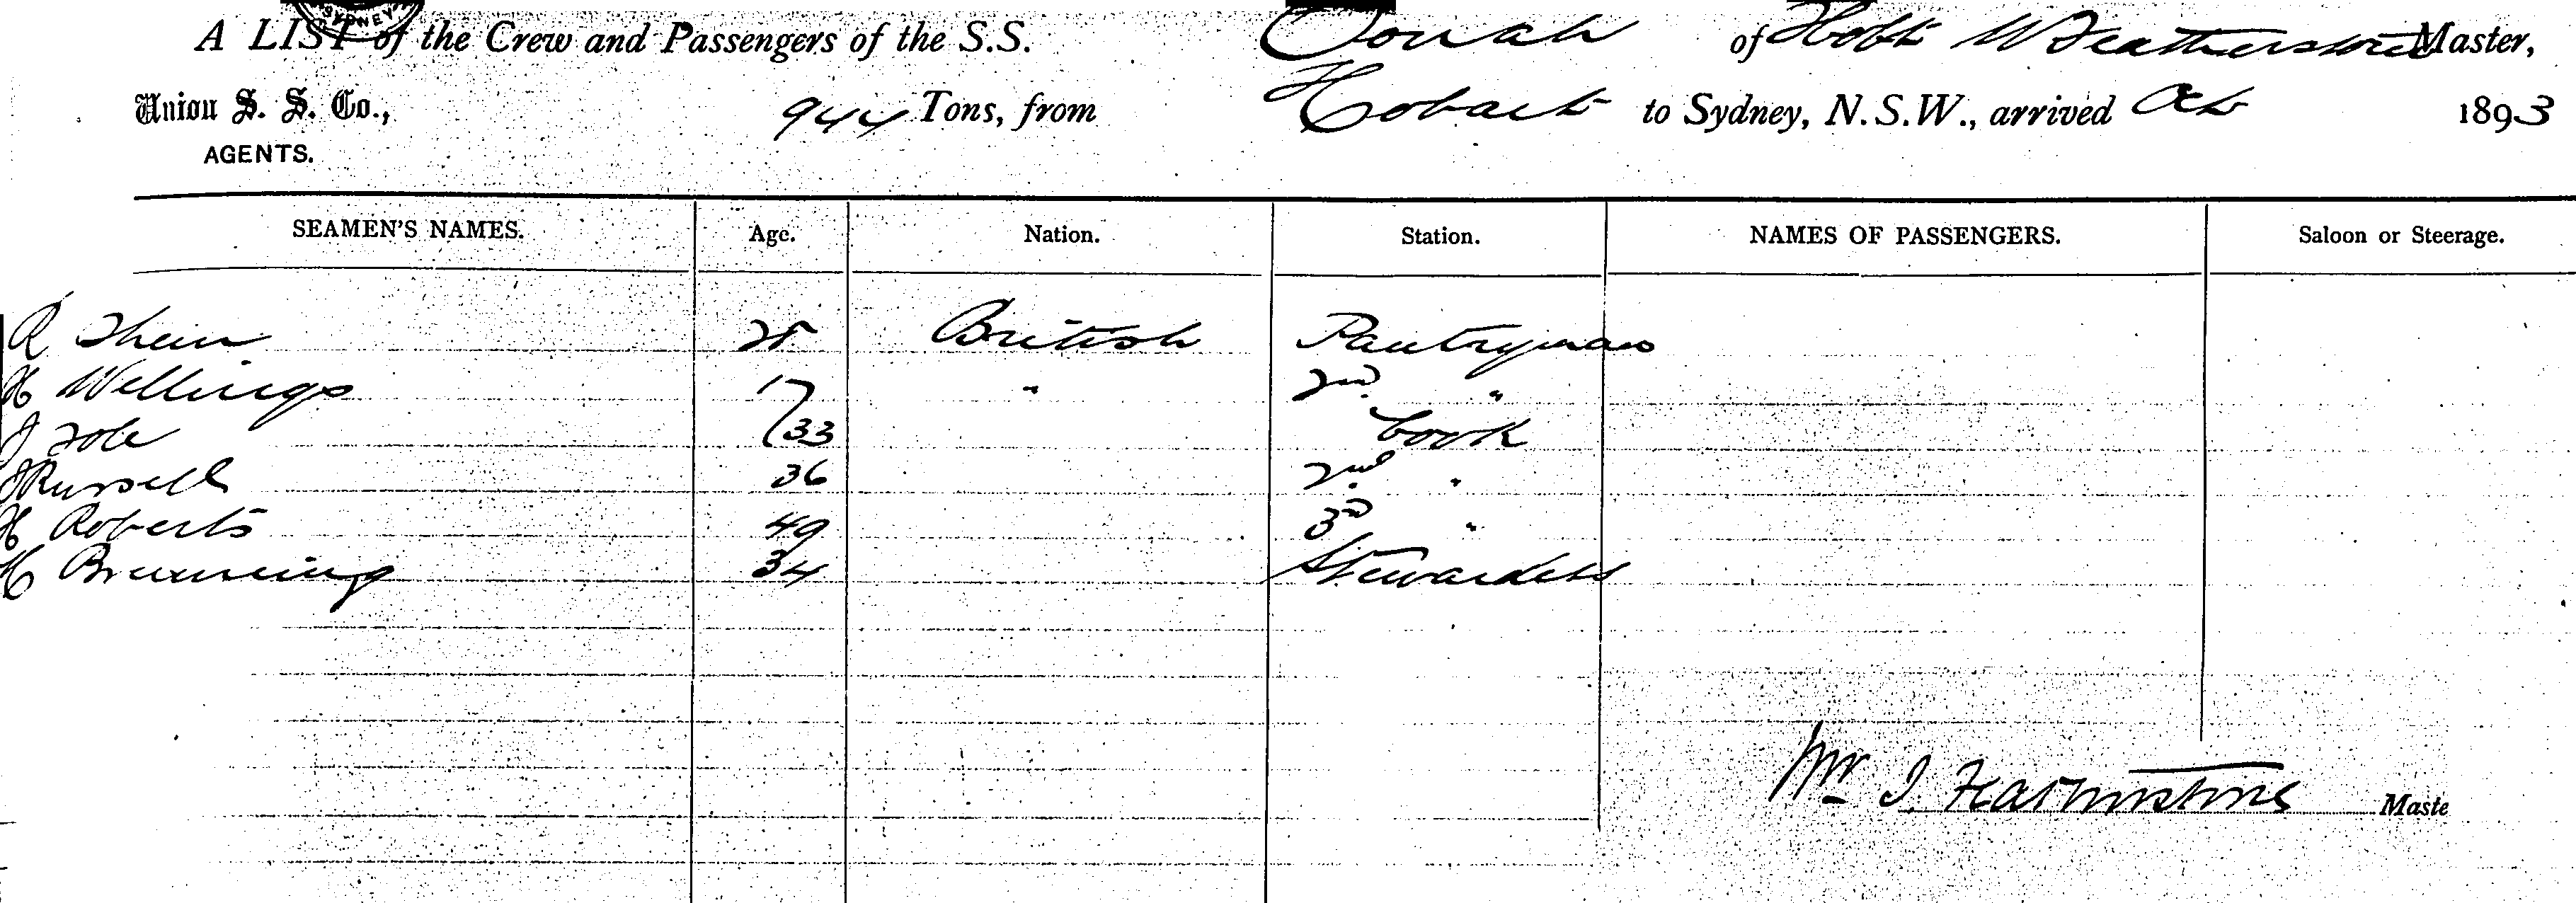 SYDNEY
A LIST of the Crew and Passengers of the S.S. of Hobt W Featherstone Master,
Union S. S. Co., 944 Tons, from Hobart to Sydney, N.S.W., arrived 1893
AGENTS.
SEAMEN'S NAMES. Age. Nation. Station. NAMES OF PASSENGERS. Saloon or Steerage.
R British Pantryman
H Wellings 17 " 2nd. "
J 33 Cook
J Russell 36 2nd "
H Roberts 49 3rd "
34 Stewardess
Wm J. Featherstone Maste